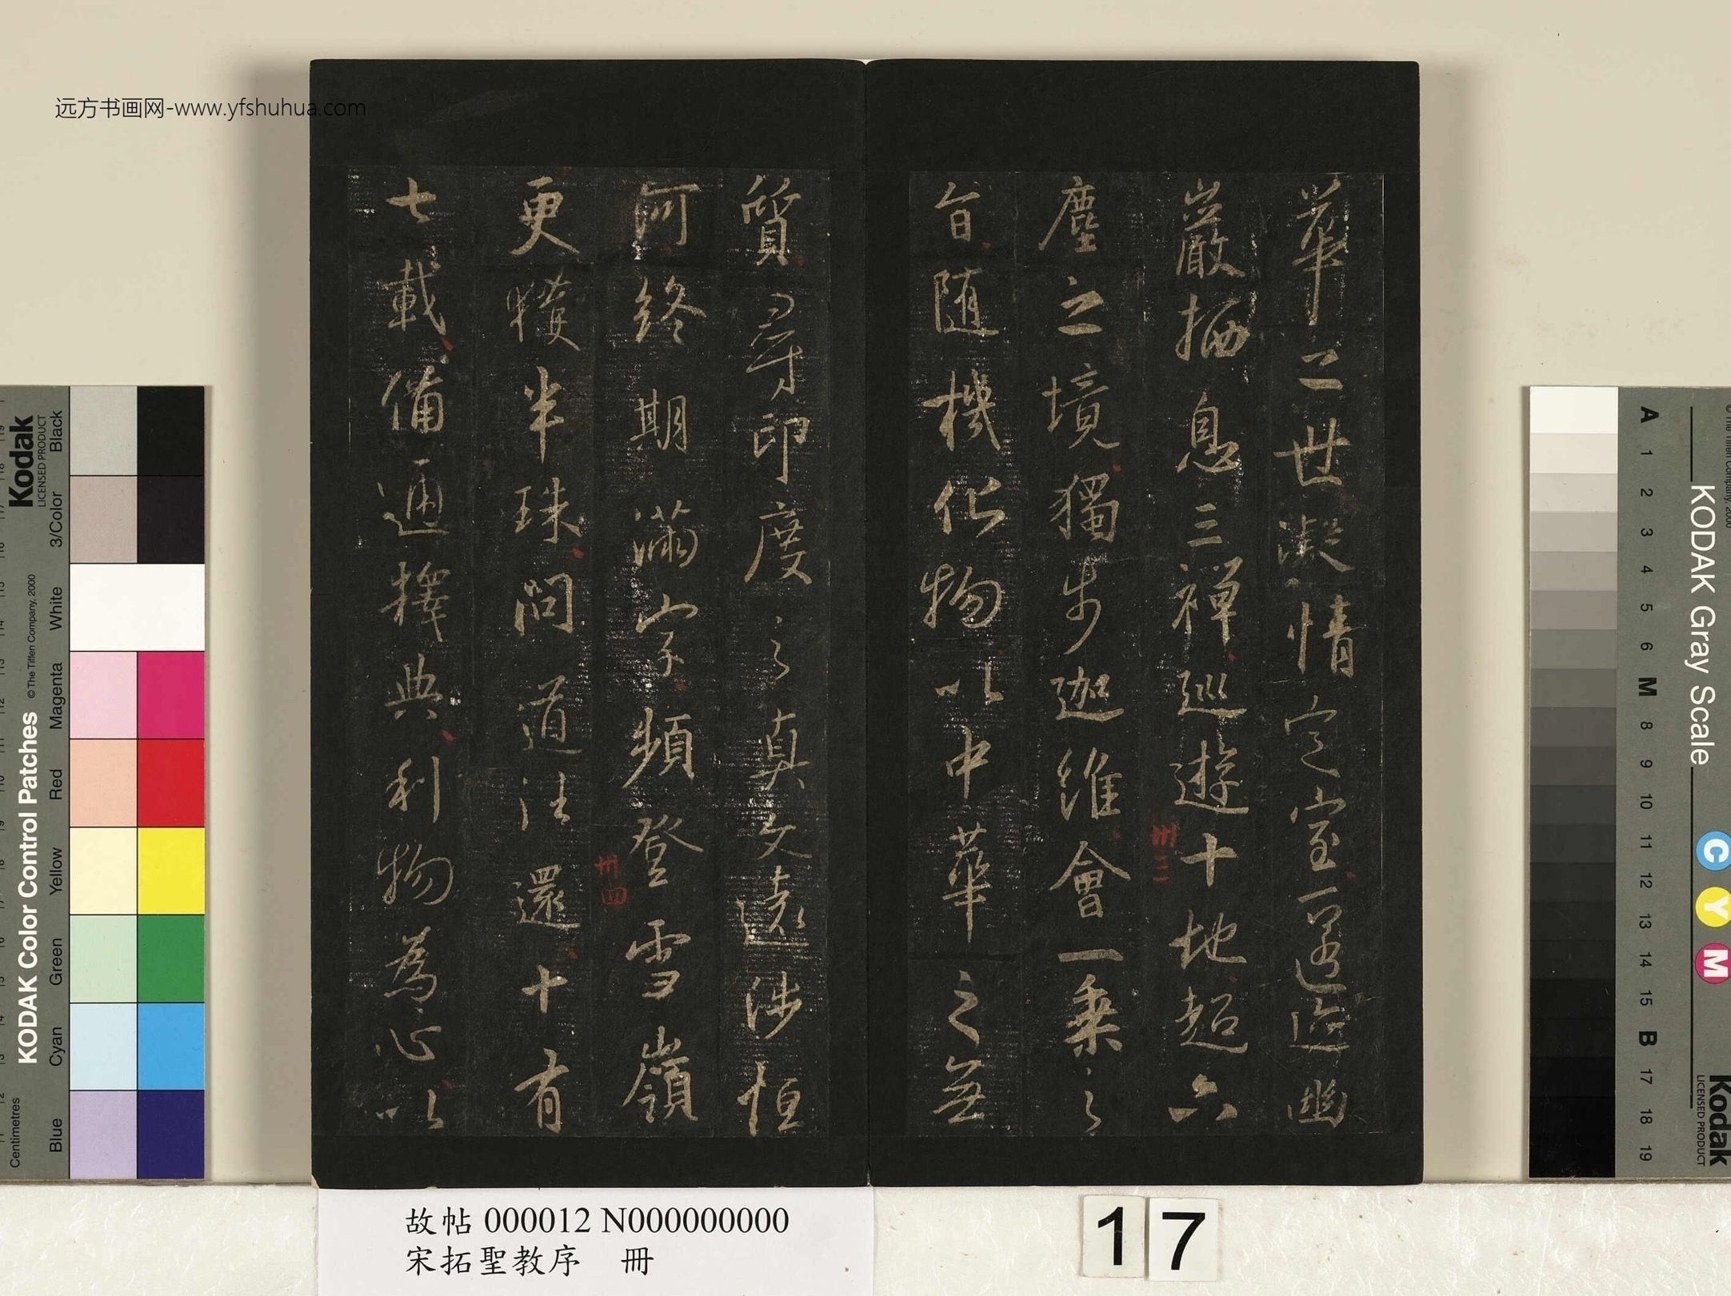 远方书画网-www.yfshuhua.com
華之世凝情定室匿迹幽
巖栖息三禪巡遊十地超六
卅三
塵之境獨步迦維會一乘之
旨隨機化物以中華之無
質尋印度之真文遠涉恒
河終期滿字頻登雪嶺
卅四
更獲半珠問道法還十有
七載備通釋典利物為心以
故帖 000012 N000000000
宋拓聖教序 冊
17
KODAK Color Control Patches
© The Tiffen Company, 2000
Kodak
LICENSED PRODUCT
Centimetres
Blue
Cyan
Green
Yellow
Red
Magenta
White
3/Color
Black
KODAK Gray Scale
Kodak
LICENSED PRODUCT
C
Y
M
A 1 2 3 4 5 6 M 8 9 10 11 12 13 14 15 B 17 18 19